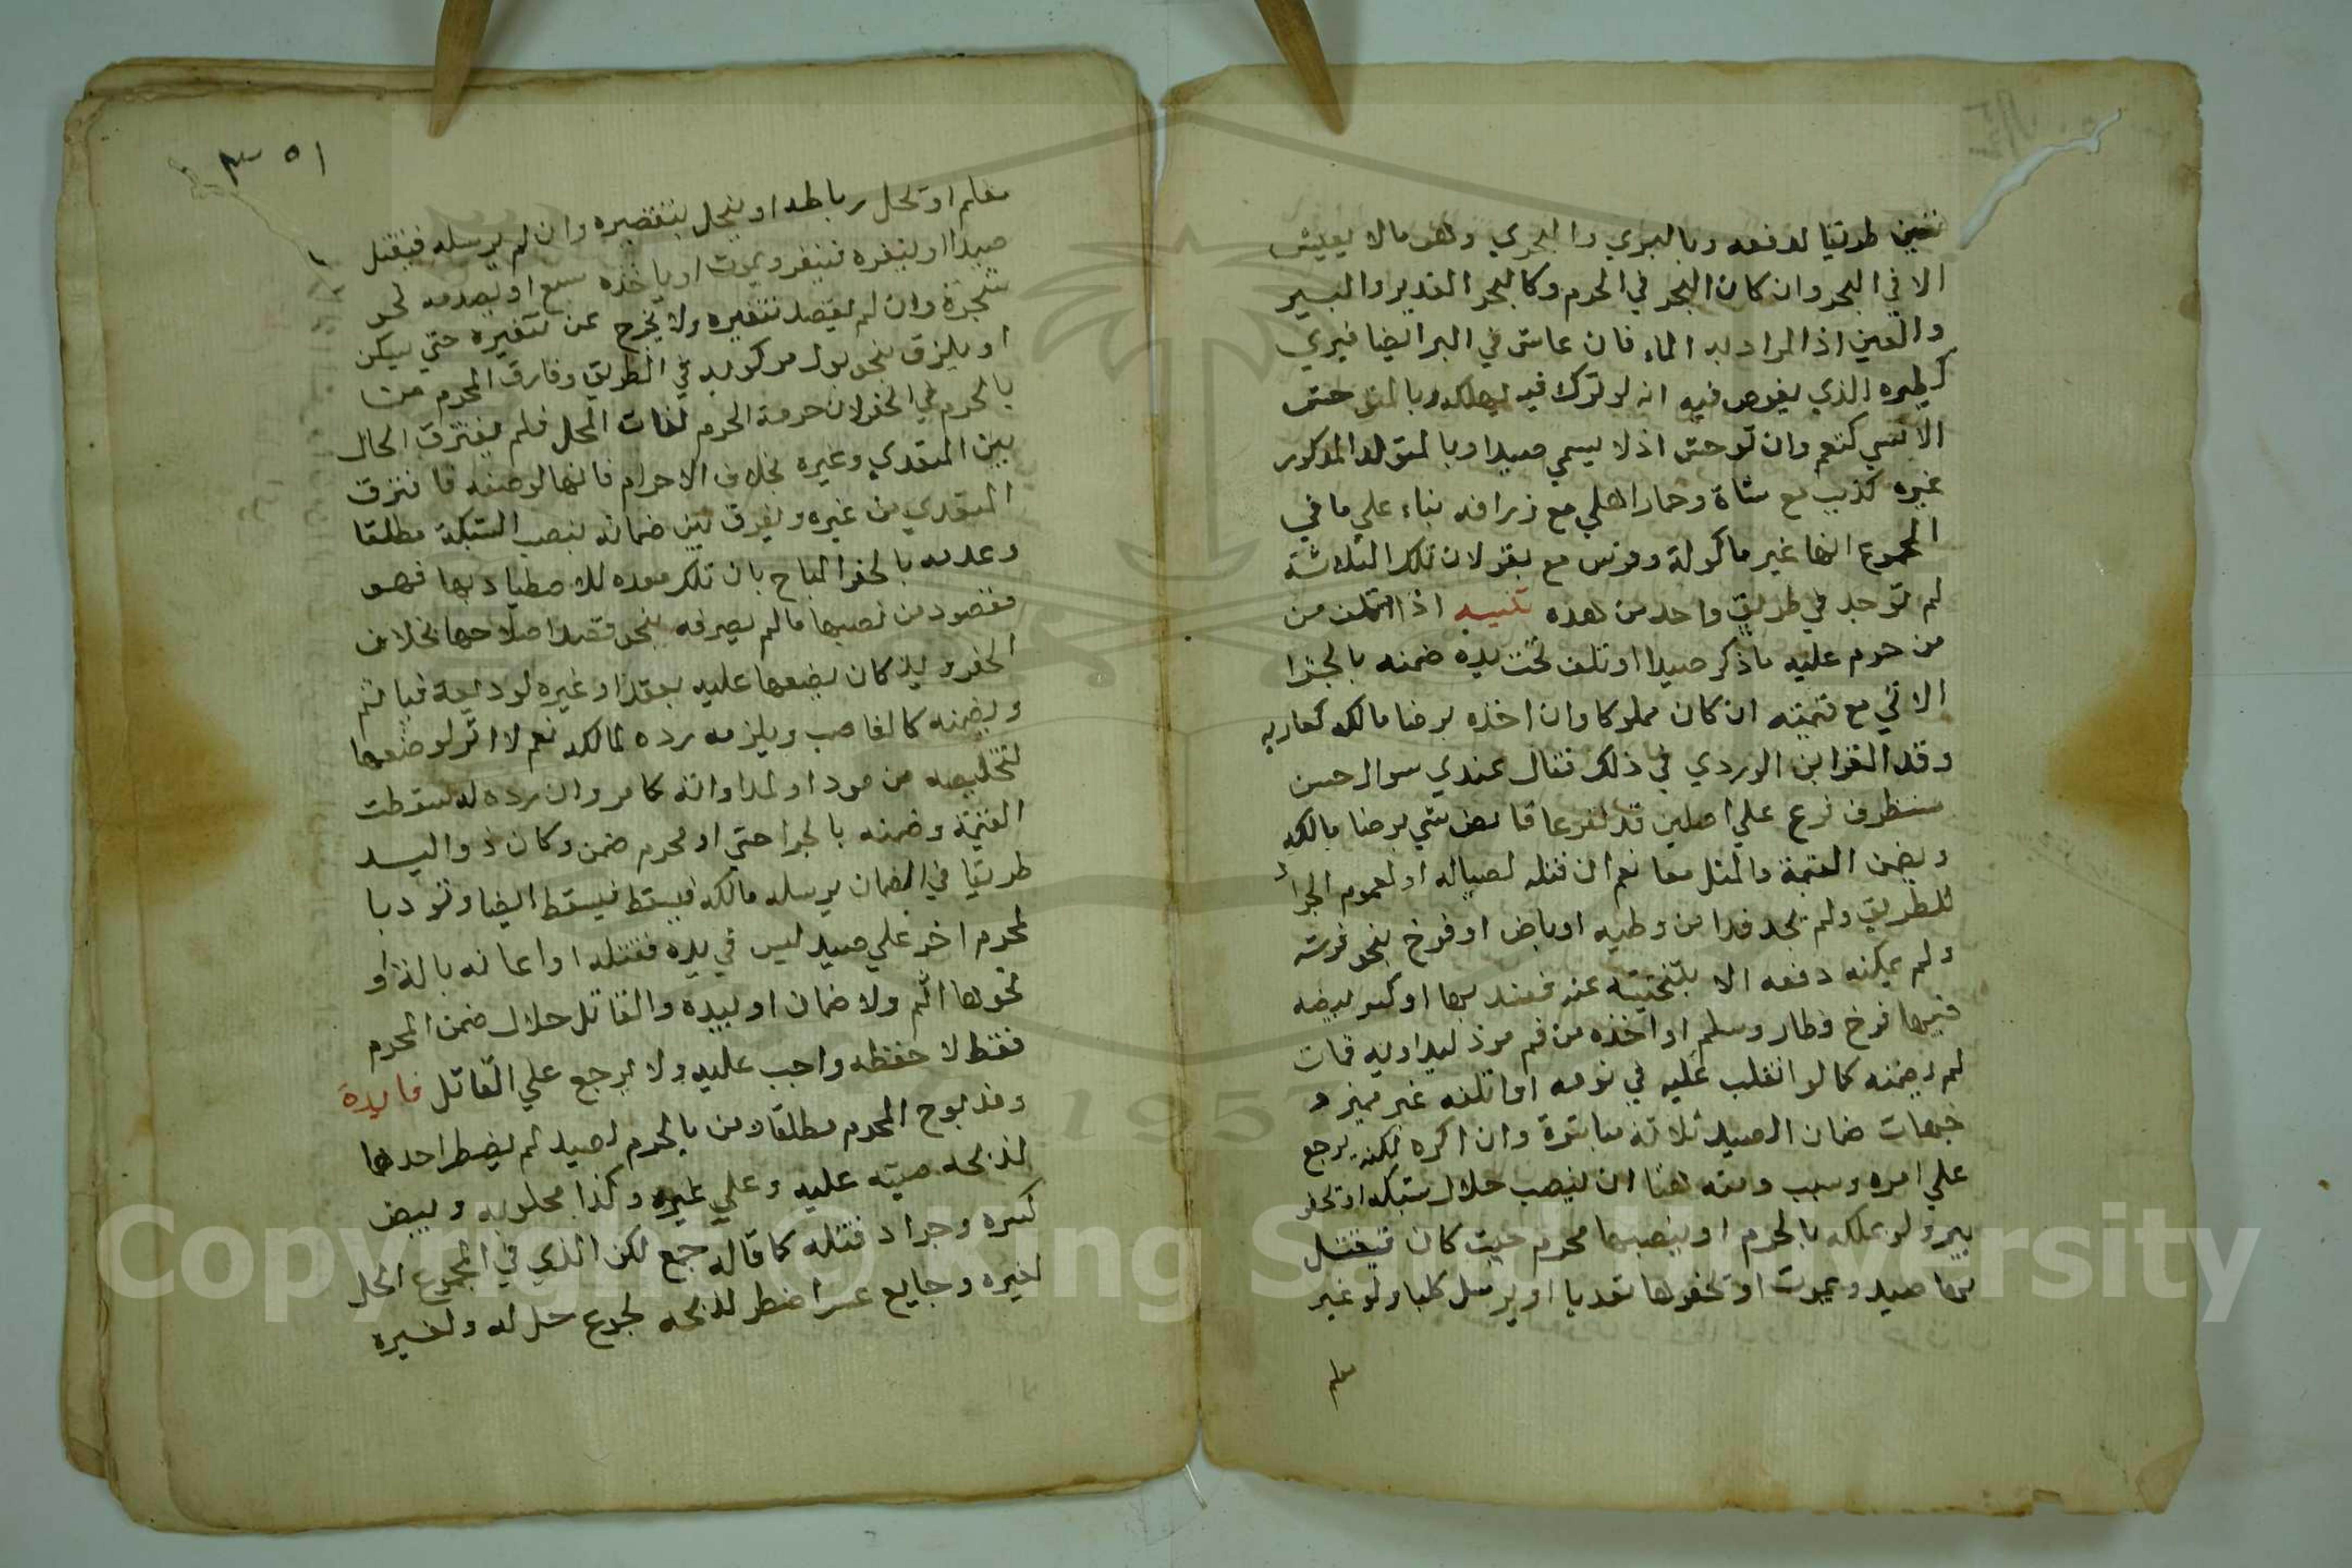 تعين طريقا لدفعه وبالبري والبحري وهو مالا يعيش
الا في البحر وان كان البحر في الحرم وكالبحر الغدير والبير
والعين اذ المراد به الماء فان عاش في البر ايضا فبري
كطيره الذي يغوص فيه انه لو ترك فيه لهلك وبالمتوحش
الانسي كنعم وان توحش اذ لا يسمي صيدا وبالمتولد المذكور
غيره كذيب مع شاة وحمار اهلي مع زرافه بناء علي ما في
المجموع انها غير ماكولة وفرس مع بقر لان تلك الثلاثة
لم توجد في طريق واحد من هده تنبيه اذا اتلف من
من حرم عليه ما ذكر صيدا او تلف تحت يده ضمنه بالجزا
الاتي مع قيمته ان كان مملوكا وان اخذه برضا مالكه كعاريه
وقد الغز ابن الوردي في ذلك فقال عندي سوال حسن
مستظرف فرع علي اصلين قد تفرعا قابض شي برضا مالكه
ويضمن القيمة والمثل معا نعم ان قتله لصياله او لعموم الجراد
للطريق ولم يجد بدا من وطيه او باض او فرخ بنحو فرشه
ولم يمكنه دفعه الا بتنحيته عنه ففسد بها او كسر بيضه
فيها فرخ فطار وسلم او اخذه من فم موذ ليداويه فمات
لم يضمنه كما لو انقلب عليه في نومه او اتلفه غير مميز و
جهات ضمان الصيد ثلاثة مباشرة وان اكره لكنه يرجع
علي امره وسبب ومنه هنا ان ينصب حلال شبكه او يحفر
بير ولو بملكه بالحرم او ينصبها محرم حيث كان فيتعقل
بها صيد ويموت او يحفرها تعديا او يرسل كلبا ولو غير
معلم
٥١ ٣
معلم او يحل رباطه او ينحل بتقصيره وان لم يرسله فيقتل
صيدا او ينفره فينفر ويموت او ياخذه سبع او يصدمه نحو
شجرة وان لم يقصد تنفيره ولا يخرج عن تنفيره حتي يسكن
او يلزق بنحو بول مركوبه في الطريق وفارق المحرم من
بالحرم في الحفر لان حرمة الحرم لذات المحل فلم يفترق الحال
بين المتعدي وغيره بخلاف الاحرام فانها لوصفه فافترق
المتعدي من غيره ويفرق بين ضمانه بنصب الشبكة مطلقا
وعدمه بالحفر المباح بان تلك معده للاصطياد بها فهو
مقصود من نصبها ما لم يصرفه بنحو قصد اصلاحها بخلاف
الحفر ويد كان يضعها عليه بعقد او غيره لوديعة فياثم
ويضمنه كالغاصب ويلزمه رده لمالكه نعم لا اثر لوضعها
لتخليصه من موذ او لمداواته كما مر وان رده له سقطت
القيمة وضمنه بالجزا حتي او لمحرم ضمن وكان ذو اليد
طريقا في الضمان يرسله مالكه فيسقط فيسقط ايضا وتو دبا
لمحرم اخر علي صيد ليس في يده فقتله او اعانه بالة او
نحوها اثم ولا ضمان او بيده والقاتل حلال ضمن المحرم
فقط لا حفظه واجب عليه ولا يرجع علي القاتل فايدة
ومذبوح المحرم مطلقا ومن بالحرم لصيد لم يضطر احدهما
لذبحه ميتة عليه وعلي غيره وكذا محلوبه وبيض
كسره وجراد قتله كما قاله جمع لكن الذي في المجموع الحل
لغيره وجايع عسر اضطر لذبحه لجوع حل له ولغيره
Copyright © King Saud University
1957